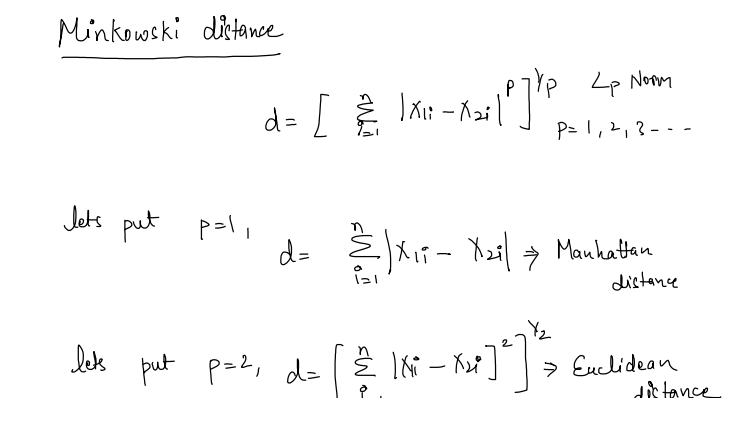 Minkowski distance
d = [ n Σ i=1 |x1i - x2i|^p ]^1/p Lp Norm
p = 1, 2, 3 - - -
lets put p=1, d = n Σ i=1 |x1i - x2i| ⇒ Manhattan
distance
lets put p=2, d = [ n Σ i |x1i - x2i]^2 ]^1/2 ⇒ Euclidean
distance